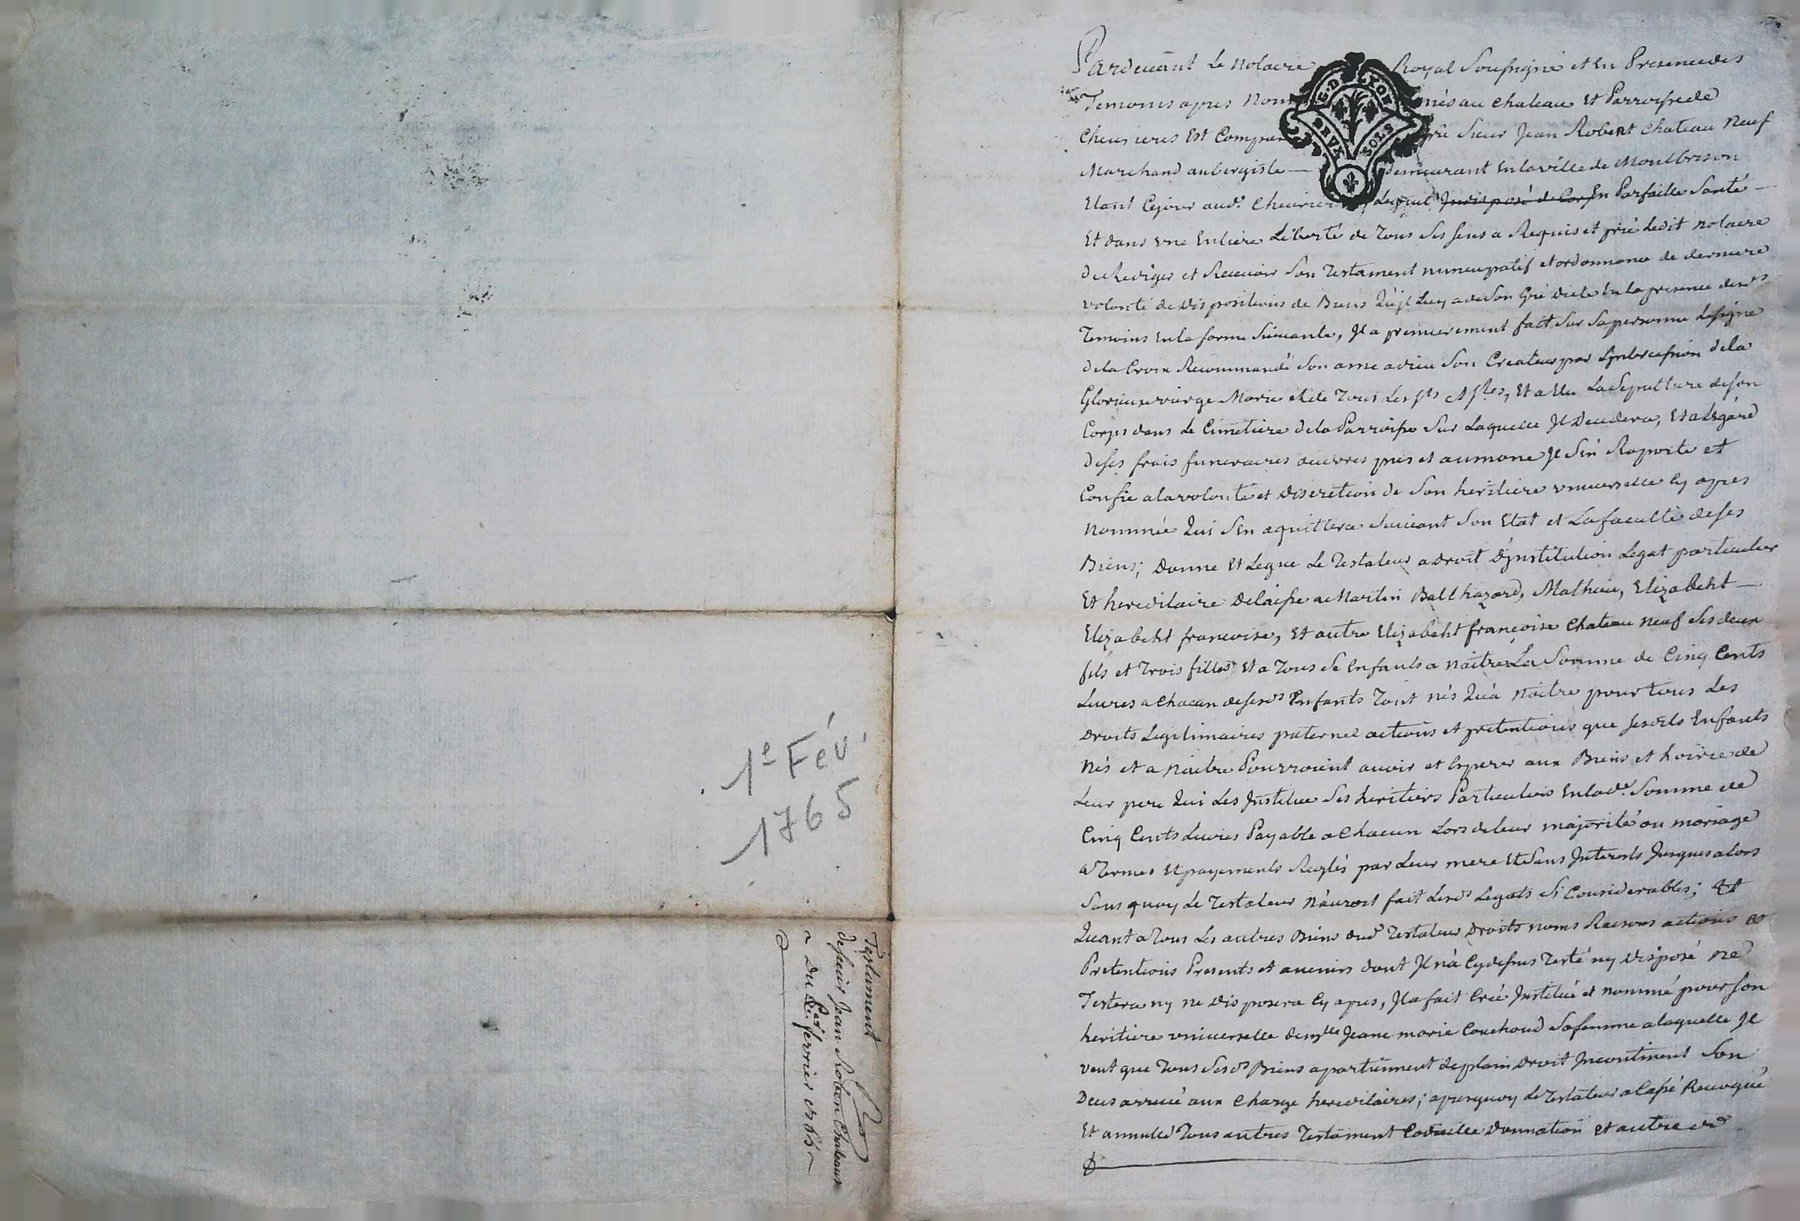 1e Fév.
1765
Testament
de sieur Jean Robert Chateauneuf
Du 1er fevrier 1765
G. D LYON
DEUX SOLS
Pardevant Le Notaire Royal Soussigné et En Presence des
Temoins apres Nommés au chateau Et Parroisse de
Cheurieres Est Comparu Sieur Jean Robert Chateau Neuf
Marchand aubergiste demeurant En la ville de Montbrison
Etant Cejour aud. Cheurieres Lequel Indisposé de Corps En Parfaitte Santé
Et dans Une Entiere Liberté de Tous Ses Sens a Requis et prié Ledit Notaire
De Rediger et Recevoir Son Testament nuncupatif et ordonnance de derniere
volonté de Dispositions de Biens Qu'jl Luy a de Son Gré Dicté En la presence desds
Temoins En la forme Suivante, Jl a premierement fait Sur Sa personne Le Signe
de la Croix Recommandé Son ame a dieu Son Createur par L'jntercession de la
Glorieuse vierge Marie et de Tous Les sts Et Stes, Et a Elu La Sepulture de son
Corps dans Le Cimetiere de la Parroisse Sur Laquelle Jl Decedera, Et a L'égard
de ses frais funeraires œuvres pies et aumone Jl S'en Raporte et
Confie a la volonté et Discretion de Son heritiere universelle Cy apres
Nommée Qui S'en aquittera Suivant Son Etat et La faculté de ses
Biens; Donne Et Legue Le Testateur a Droit D'jnstitution Legat particulier
Et hereditaire Delaisse a Martin Balthazard, Mathieu, Elizabeht
Elizabeht francoise, Et autre Elizabeht françoise Chateau neuf Ses deux
fils et Trois filles Et a Tous Se Enfants a Naitre La Somme de Cinq Cents
Livres a Chacun de sesds Enfants Tant nés Qu'a Naitre pour tous Les
Droits Legitimaires paternel actions et pretentions que sesdits Enfants
Nés et a Naitre Pourroient avoir et Esperer aux Biens et hoirie de
Leur pere Qui Les Jnstitue Ses heritiers Particuliers En lade Somme de
Cinq Cents Livres Payable a Chacun Lors de leur majorité ou mariage
a Termes Et payements Reglés par Leur mere Et Sans Jnterets Jusques alors
Sans quoy Le Testateur N'auroit fait Lesds Legats Si Considerables; Et
Quant a Tous Les autres Biens dud Testateur Droits noms Raisons actions Et
Pretentions Presents et avenirs dont Jl n'a Cy dessus Testé ny Disposé ne
Testera ny ne Disposera Cy apres, Jl a fait Créé Jnstitué et nommé pour son
heritiere universelle demlle Jeane marie Couchoud Sa femme a laquelle Jl
veut que Tous Sesds Biens apartiennent de plain Droit Jncontinent Son
Deces arrivé aux Charge hereditaires; aprequoy Le Testateur a Cassé Revoqué
Et annullé Tous autres Testament Codicille Donnation et autre